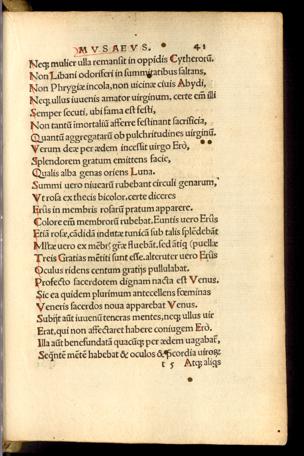 MVSAEVS. 41
Neq; mulier ulla remansit in oppidis Cytherorũ.
Non Libani odoriferi in summitatibus saltans,
Non Phrygiæ incola, non uicinæ ciuis Abydi,
Neq; ullus iuuenis amator uirginum. certe em̃ illi
Semper secuti, ubi fama est festi,
Non tantũ immortaliũ afferre festinant sacrificia,
Quantũ aggregatarũ ob pulchritudines uirginũ.
Verum deæ per ædem incessit uirgo Erò,
Splendorem gratum emittens facie,
Qualis alba genas oriens Luna.
Summi uero niuearũ rubebant circuli genarum,
Vt rosa ex thecis bicolor. certe diceres
Erũs in membris rosarũ pratum apparere.
Colore em̃ membrorũ rubebat. Euntis uero Erũs
Etiã rosæ, cãdidã indutæ tunicã sub talis splẽdebãt
Mltæ uero ex mẽbr; grãæ fluebãt. sed ãtiq; (puellæ
Treis Gratias mẽtiti sunt esse. alteruter uero Erũs
Oculus ridens centum gratijs pullulabat.
Profecto sacerdotem dignam nacta est Venus.
Sic ea quidem plurimum antecellens fœminas
Veneris sacerdos noua apparebat Venus.
Subijt aũt iuuenũ teneras mentes, neq; ullus uir
Erat, qui non affectaret habere coniugem Erò.
Illa aũt benefundatã quacũq; per ædem uagabat̃,
Seq̃ntẽ mẽtẽ habebat & oculos & p̃cordia uirorꝝ
t 5 Atq; aliqs